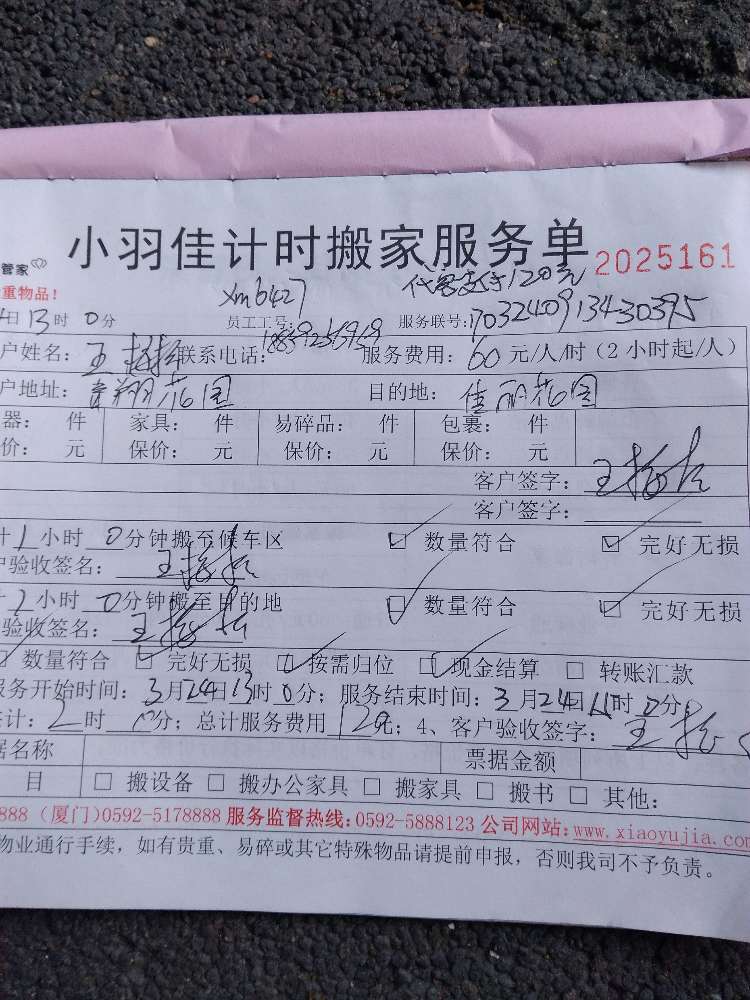 管家 小羽佳计时搬家服务单 2025161
重物品！ xm6427 代客支付120元
日13时0分 员工工号： 服务联号：1703240913430395
户姓名：王 联系电话： 服务费用：60元/人/时（2小时起/人）
户地址：翔花园 目的地：佳丽花园
器： 件 家具： 件 易碎品： 件 包裹： 件
价： 元 保价： 元 保价： 元 保价： 元
客户签字：王
客户签字：
计1小时0分钟搬至候车区 数量符合 完好无损
户验收签名：王
计1小时0分钟搬至目的地 数量符合 完好无损
验收签名：王
数量符合 完好无损 按需归位 现金结算 转账汇款
服务开始时间：3月24日13时0分；服务结束时间：3月24日时0分
共计：2时0分；总计服务费用120元；4、客户验收签字：王
据名称 票据金额
目 搬设备 搬办公家具 搬家具 搬书 其他：
888（厦门）0592-5178888 服务监督热线：0592-5888123 公司网站：www.xiaoyujia.com
物业通行手续，如有贵重、易碎或其它特殊物品请提前申报，否则我司不予负责。